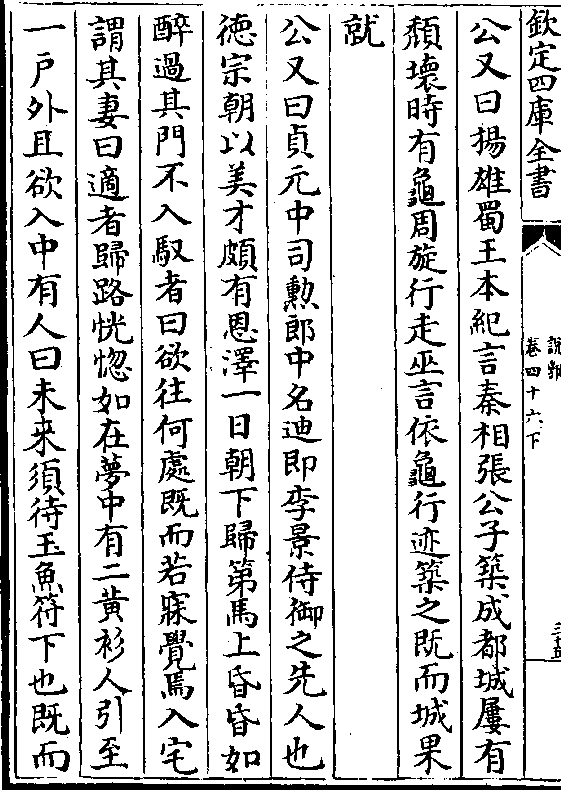 欽定四庫全書
說郛
卷四十六下
公又曰揚雄蜀王本紀言秦相張公子築成都城屢有
頹壞時有龜周旋行走巫言依龜行迹築之既而城果
就
公又曰貞元中司勲郎中名迪即李景侍御之先人也
徳宗朝以美才頗有恩澤一日朝下歸第馬上昏昏如
醉過其門不入馭者曰欲往何處既而若寐覺焉入宅
謂其妻曰適者歸路恍惚如在夢中有二黄衫人引至
一戸外且欲入中有人曰未来須待玉魚符下也既而